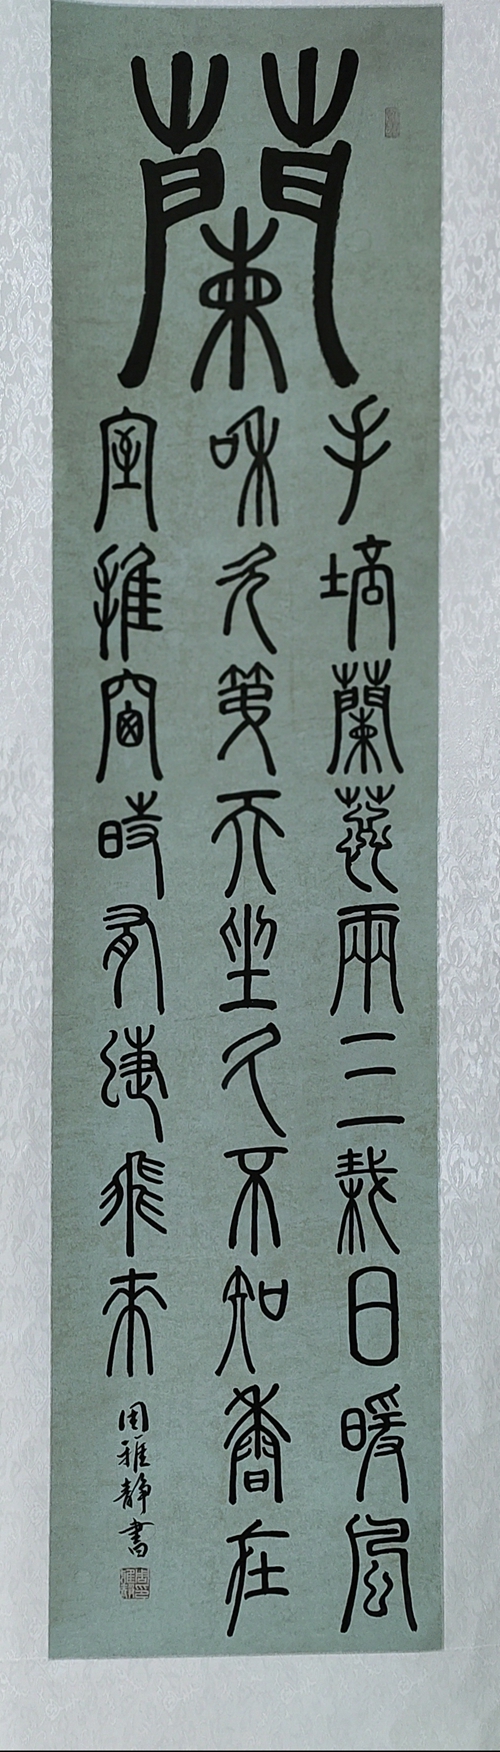 蘭
手培蘭蕊兩三栽日暖風
和次第天坐久不知香在
室推窗時有蜨飛來
周雅静書